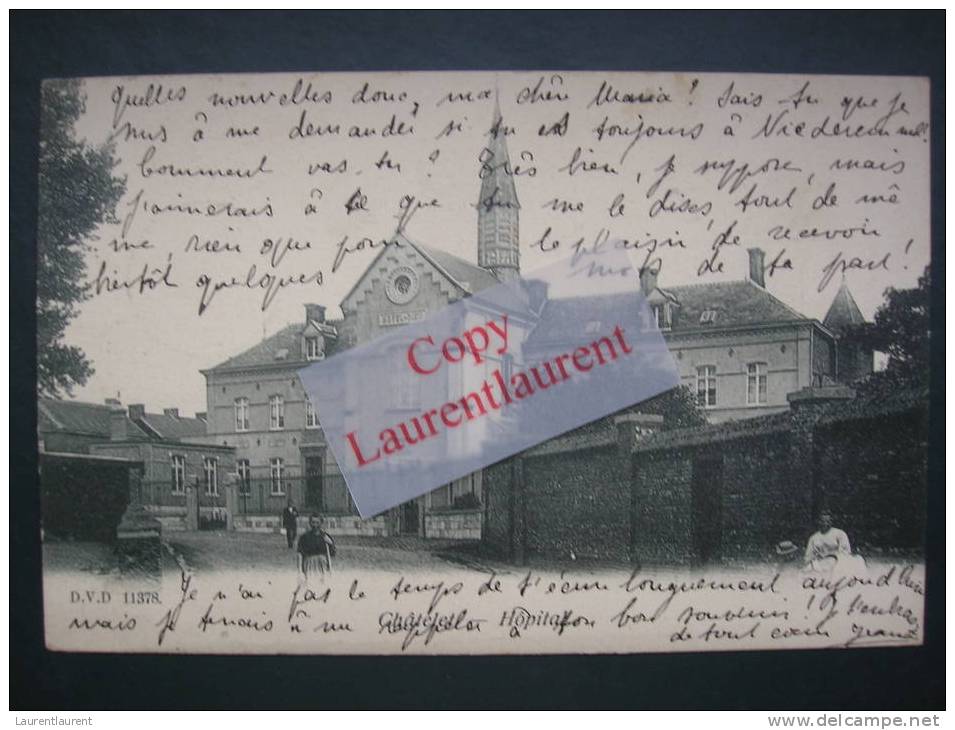 Quelles nouvelles donc, ma chère Maria! Sais tu que je
suis à me demander si tu es toujours à
Comment vas-tu? Très bien, je suppose, mais
j'aimerais à ce que tu me le dises, tout de mê
me, rien que pour le plaisir de recevoir
bientôt quelques mots de ta part!
Copy
Laurentlaurent
HOPITAL
Je n'ai pas le temps de t'écrire longuement aujourd'hui
D.V.D 11378.
Châtelet — Hôpital
mais je tenais à me rappeler à ton bon souvenir! Je t'embrasse
de tout cœur
Laurentlaurent
www.delcampe.net